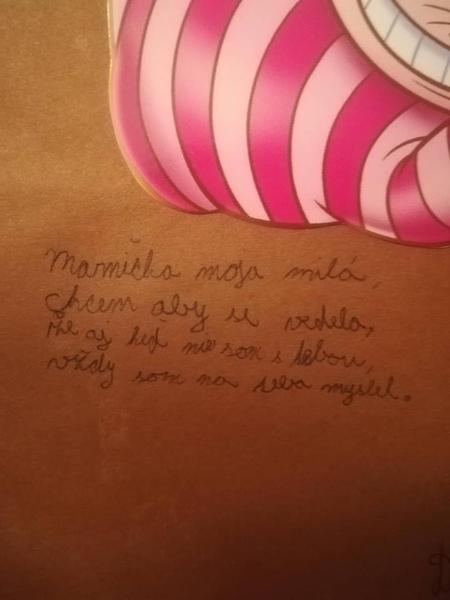 Mamička moja milá,
Chcem aby si vedela,
že aj keď nie som s tebou,
vždy som na teba myslel.